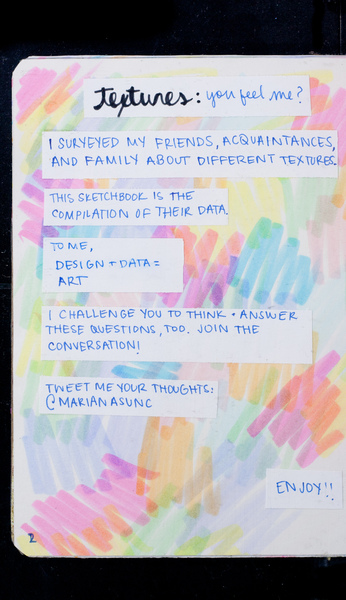 textures: you feel me?
I SURVEYED MY FRIENDS, ACQUAINTANCES,
AND FAMILY ABOUT DIFFERENT TEXTURES.
THIS SKETCHBOOK IS THE
COMPILATION OF THEIR DATA.
TO ME,
DESIGN + DATA =
ART
I CHALLENGE YOU TO THINK + ANSWER
THESE QUESTIONS, TOO. JOIN THE
CONVERSATION!
TWEET ME YOUR THOUGHTS:
@MARIANASUNC
ENJOY!!
2